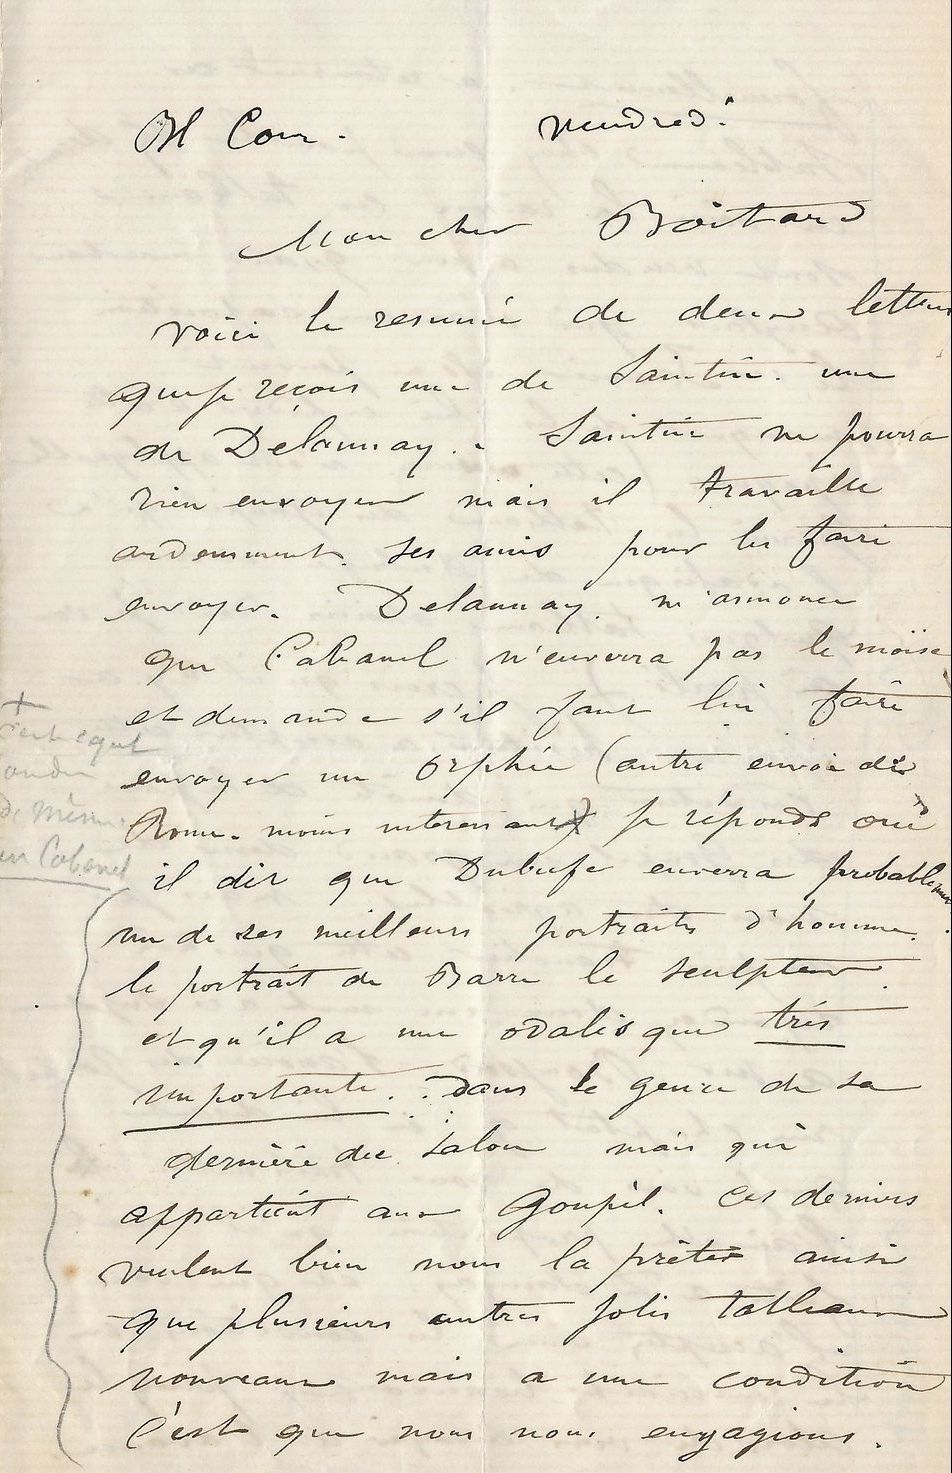 vendredi
Mon cher Boitard
voici le resumé de deux lettres
que je reçois une de Saintin. une
de Delaunay. Saintin ne pourra
rien envoyer mais il travaille
ardemment ses amis pour les faire
envoyer. Delaunay. m'annonce
que Cabanel n'enverra pas le moïse
et demande s'il faut lui faire
envoyer un Orphée (autre envoi de
Rome. moins interessant) je réponds oui
il dit que Dubufe enverra probablement
un de ses meilleurs portraits d'homme.
le portrait de Barre le sculpteur.
et qu'il a une odalisque très
importante. dans le genre de sa
dernière du Salon mais qui
appartient aux Goupil. Ces derniers
veulent bien nous la prêter ainsi
que plusieurs autres jolis tableaux
nouveaux mais a une condition
C'est que nous nous engagions.
+
un Cabanel